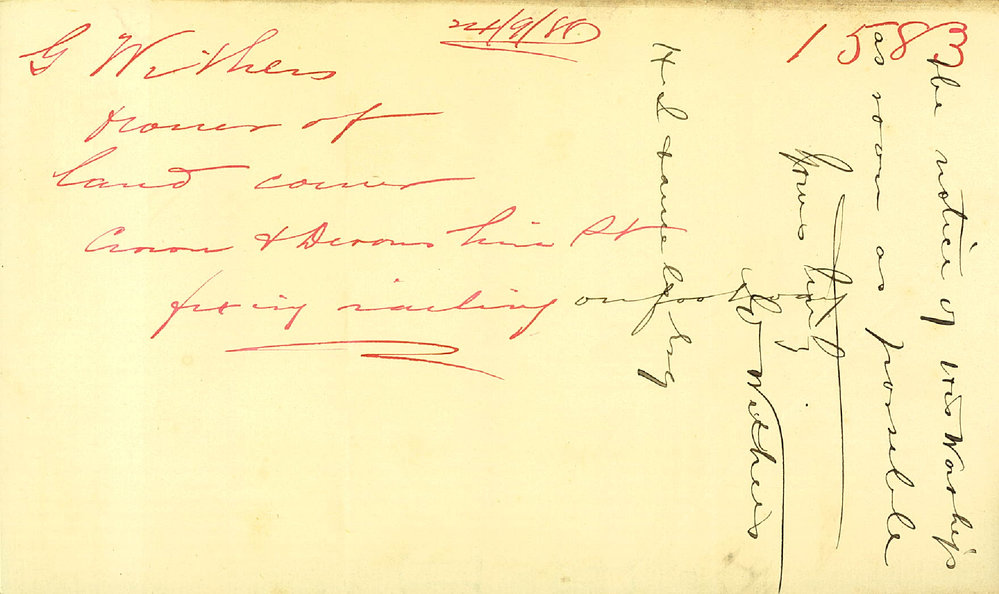 24/9/80
1583
G Withers
owner of
land corner
Crown & Devonshire St
fixing railing on footway
the notice of His Worship
as soon as possible
Yours truly
G Withers
H S Daniel Esq